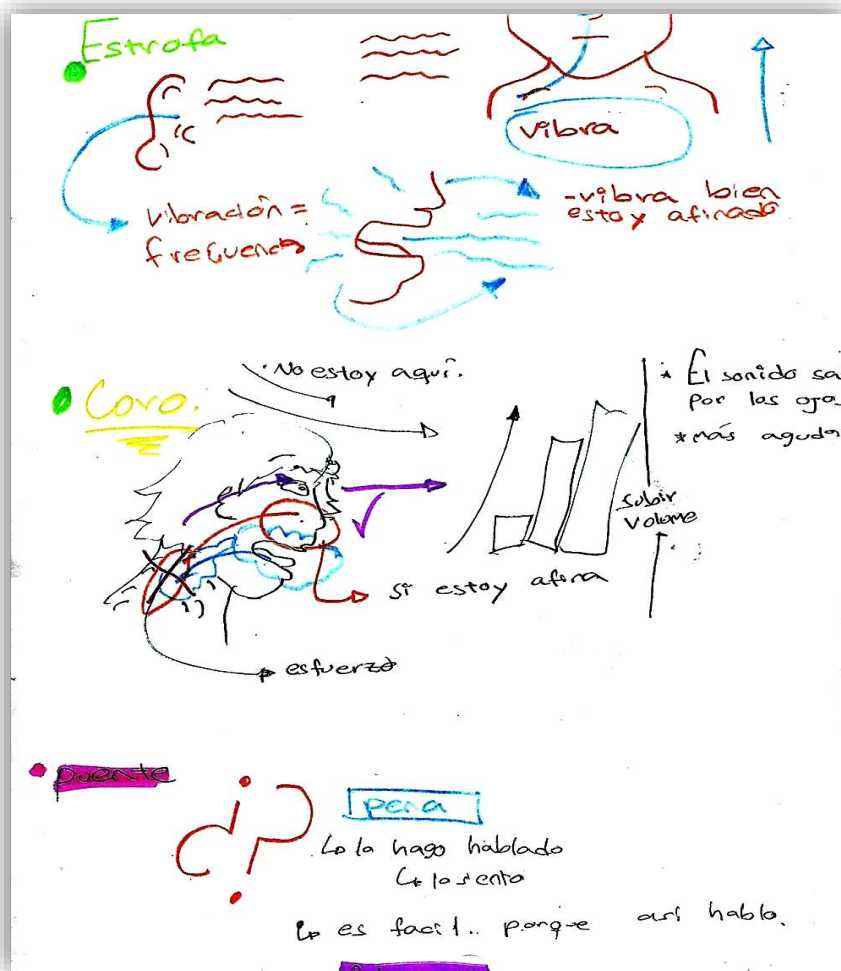 Estrofa
vibra
vibración =
frecuencia
-vibra bien
estoy afinado
Coro.
No estoy aquí.
* El sonido sa
por los ojo
* más agudo
subir
volume
si estoy afina
esfuerzo
puente
¿?
pena
la hago hablado
lo siento
es facil.. porque así hablo.